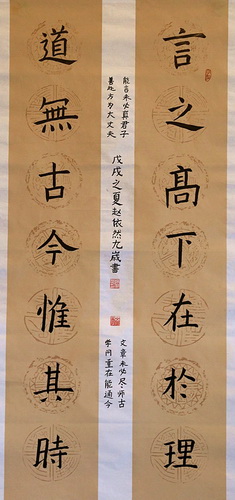 言之高下在於理
道無古今惟其時
能言未必真君子
善處方为大丈夫
戊戌之夏赵依然九歲書
文章未必尽师古
学问重在能通今